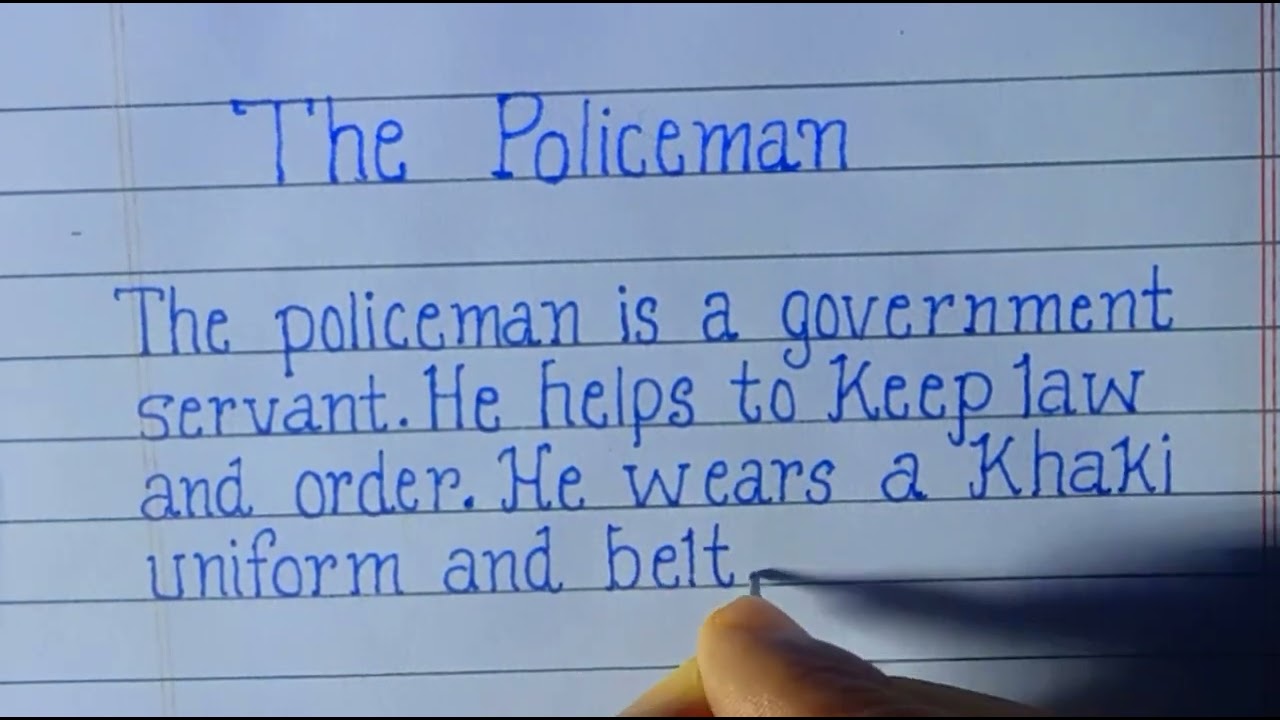 The Policeman
The policeman is a government
servant. He helps to Keep law
and order. He wears a Khaki
uniform and belt.